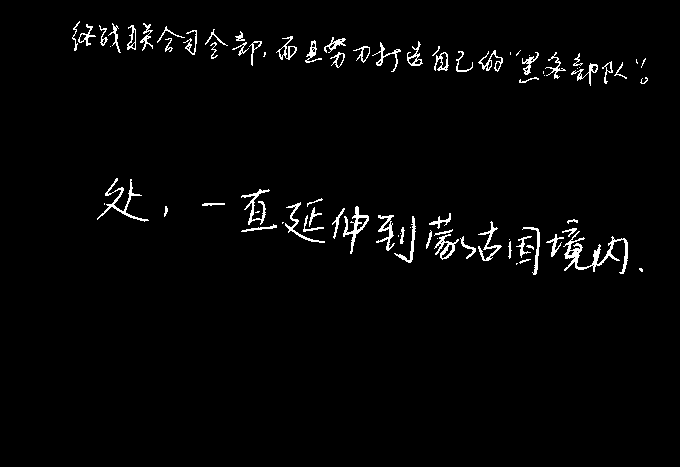 络战联合司令部,而且努力打造自己的“黑客部队”。
处,一直延伸到蒙古国境内.